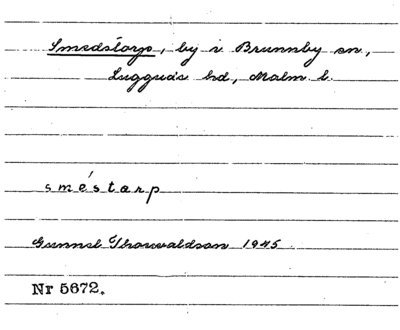 Smedstorp, by i Brunnby sn,
Luggude hd, Malm. l.
sméstarp
Gunnel Thorvaldson 1945
Nr 5672.